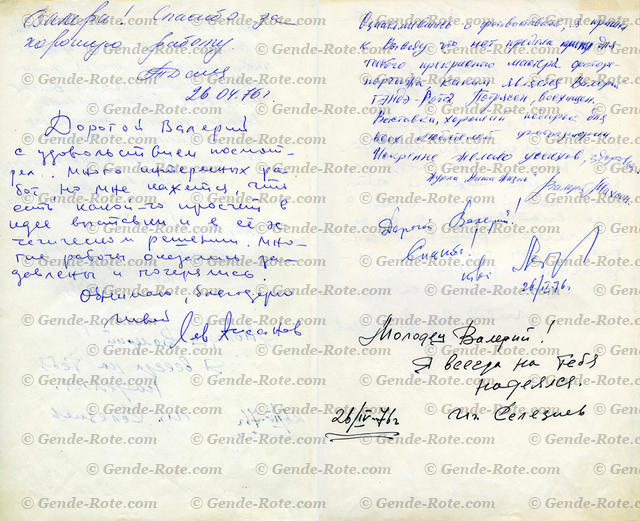 Валера! Спасибо за
хорошую работу.
26.04.76г.
Дорогой Валерий
с удовольствием посмот-
рел. Много интересных ра-
бот, но мне кажется, что
есть какой-то просчёт в
идее выставки и в её эс-
тетическом решении. Мно-
гие работы оказались за-
давлены и потерялись
Обнимаю, благодарю
Лев Ассанов
Ознакомившись с фотовыставкой, я пришел
к выводу что нет предела для
такого прекрасного мастера фоторе-
портажа каким является Валерий
Генде-Роте. Потрясен, восхищен.
Выставка, хороший подарок для
всех любителей фотографии
Искренне желаю успехов, здоровья.
Дорогой Валерий!
Спасибо!
26/IV.76.
Молодец Валерий!
Я всегда на тебя
надеялся.
26/IV-76г Ив. Селезнев
© Gende-Rote.com